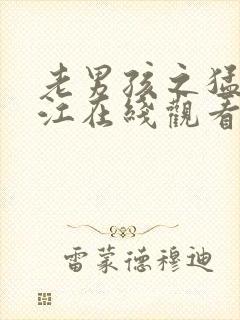 老男孩之猛
江在綫觀看
雷蒙德穆迪